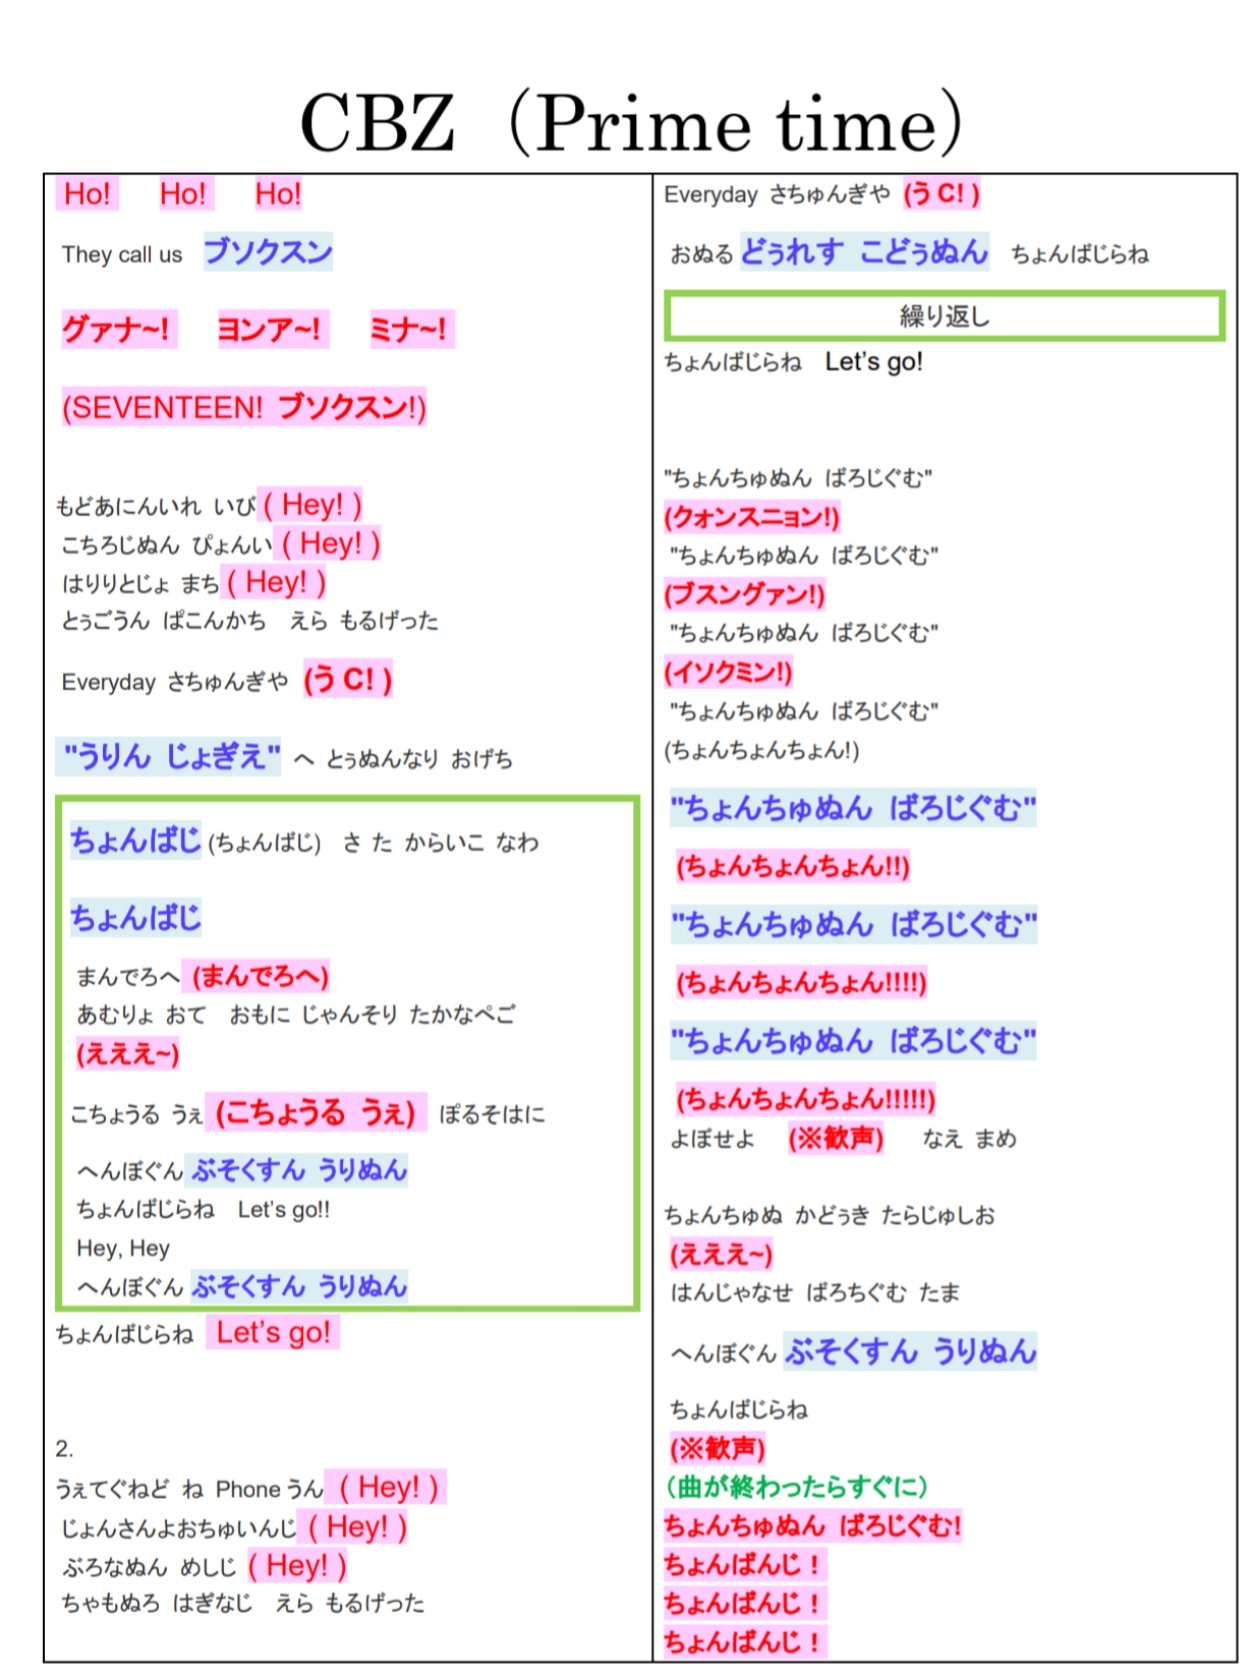 CBZ（Prime time）
Ho! Ho! Ho!
They call us ブソクスン
グァナ~! ヨンア~! ミナ~!
(SEVENTEEN! ブソクスン!)
もどあにんいれ いび ( Hey! )
こちろじぬん ぴょんい ( Hey! )
はりりとじょ まち ( Hey! )
とぅごうん ぱこんかち えら もるげった
Everyday さちゅんぎや (う C! )
"うりん じょぎえ" へ とぅぬんなり おげち
ちょんばじ (ちょんばじ) さ た からいこ なわ
ちょんばじ
まんでろへ (まんでろへ)
あむりょ おて おもに じゃんそり たかなぺご
(えええ~)
こちょうる うぇ (こちょうる うぇ) ぽるそはに
へんぼぐん ぶそくすん うりぬん
ちょんばじらね Let's go!!
Hey, Hey
へんぼぐん ぶそくすん うりぬん
ちょんばじらね Let's go!
2.
うぇてぐねど ね Phone うん ( Hey! )
じょんさんよおちゅいんじ ( Hey! )
ぶろなぬん めしじ ( Hey! )
ちゃもぬろ はぎなじ えら もるげった
Everyday さちゅんぎや (う C! )
おぬる どぅれす こどぅぬん ちょんばじらね
繰り返し
ちょんばじらね Let's go!
"ちょんちゅぬん ばろじぐむ"
(クォンスニョン!)
"ちょんちゅぬん ばろじぐむ"
(ブスングァン!)
"ちょんちゅぬん ばろじぐむ"
(イソクミン!)
"ちょんちゅぬん ばろじぐむ"
(ちょんちょんちょん!)
"ちょんちゅぬん ばろじぐむ"
(ちょんちょんちょん!!)
"ちょんちゅぬん ばろじぐむ"
(ちょんちょんちょん!!!!)
"ちょんちゅぬん ばろじぐむ"
(ちょんちょんちょん!!!!!)
よぼせよ (※歓声) なえ まめ
ちょんちゅぬ かどぅき たらじゅしお
(えええ~)
はんじゃなせ ばろちぐむ たま
へんぼぐん ぶそくすん うりぬん
ちょんばじらね
(※歓声)
（曲が終わったらすぐに）
ちょんちゅぬん ばろじぐむ!
ちょんばんじ！
ちょんばんじ！
ちょんばんじ！